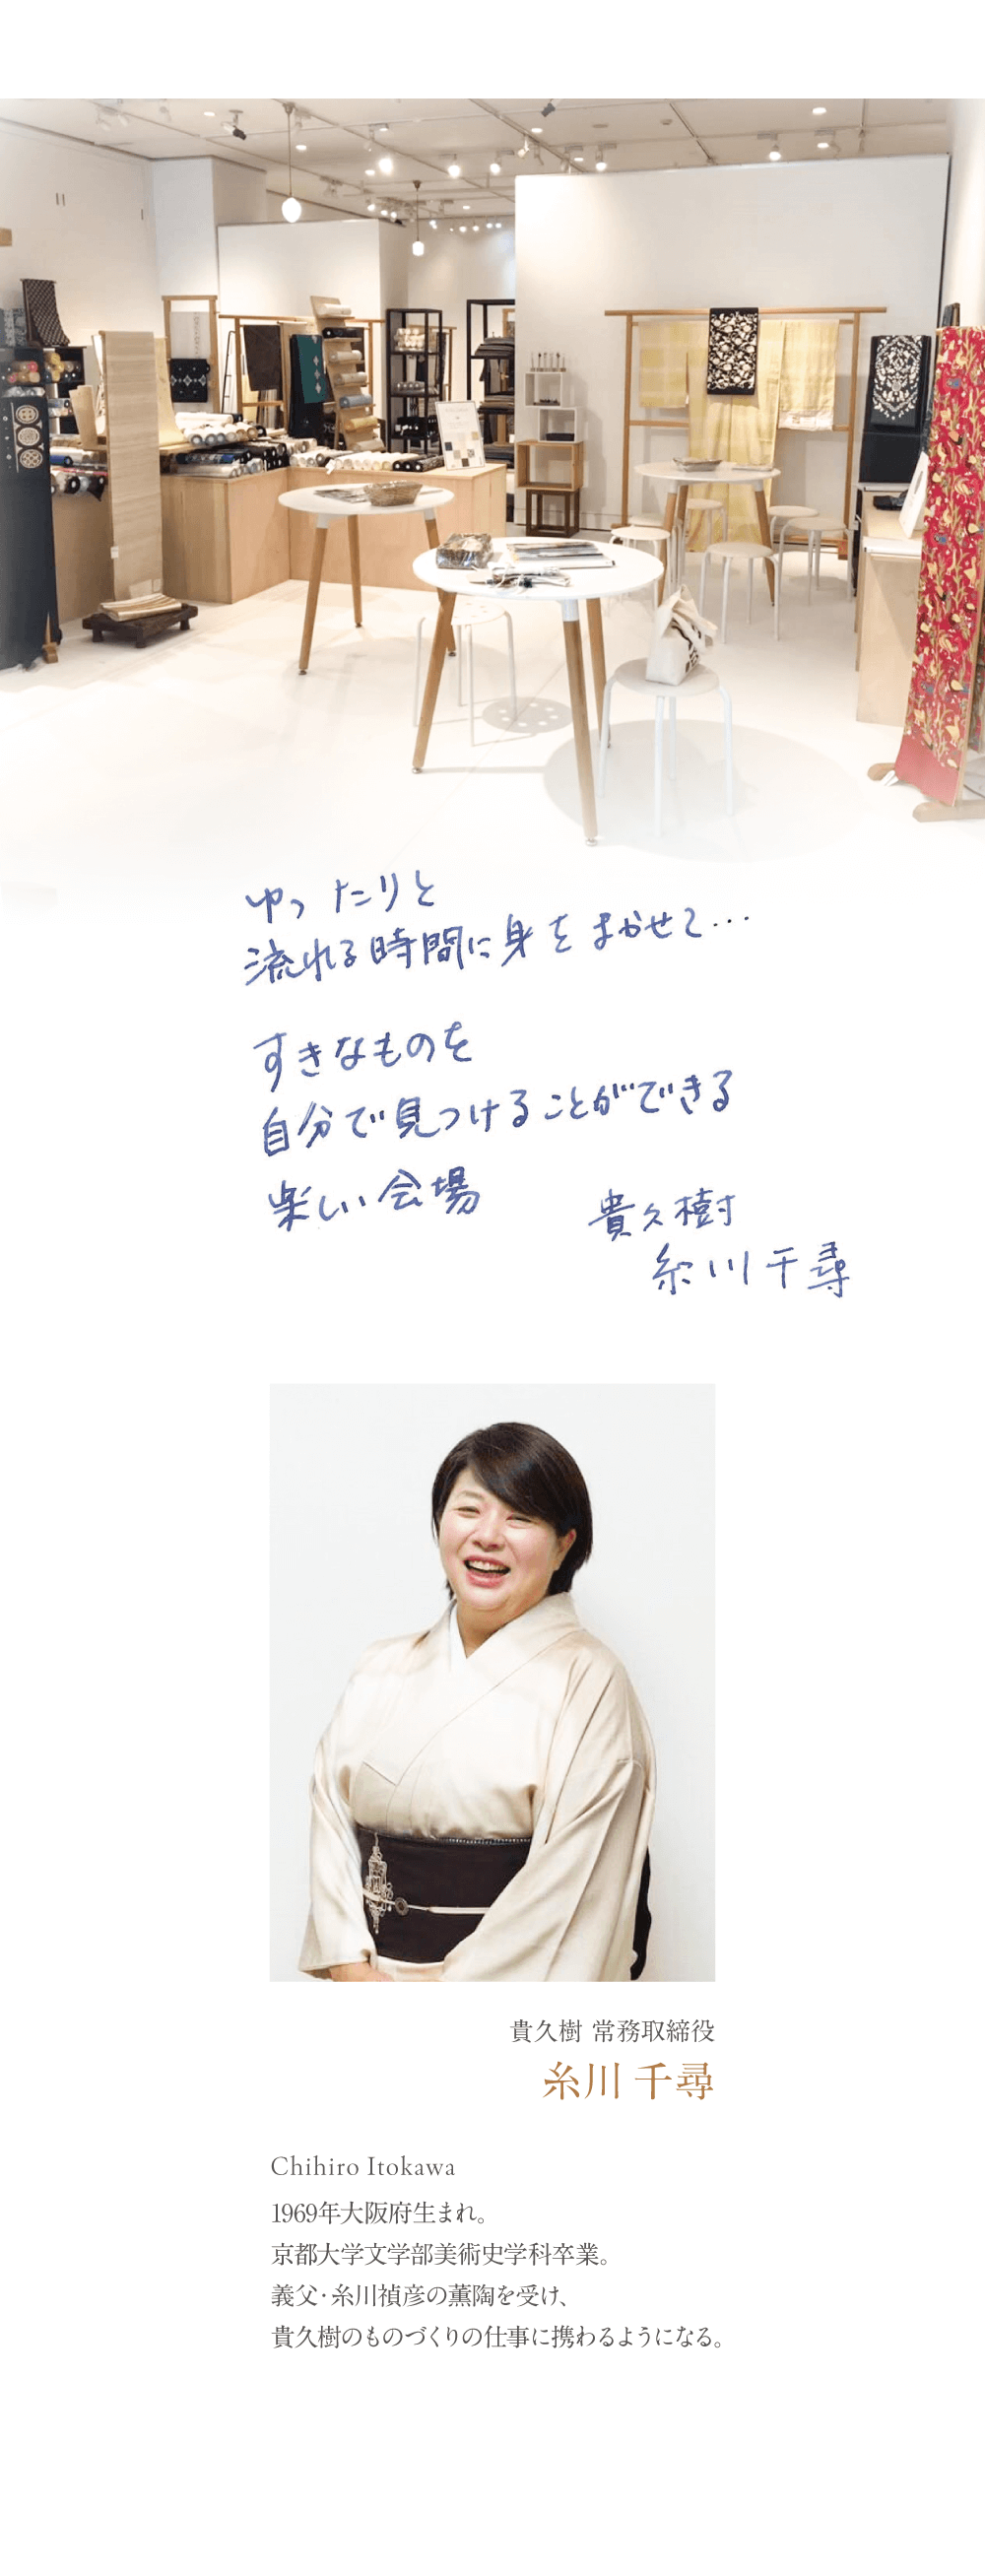 ゆったりと
流れる時間に身をまかせて…
すきなものを
自分で見つけることができる
楽しい会場
貴久樹
糸川千尋
貴久樹 常務取締役
糸川 千尋
Chihiro Itokawa
1969年大阪府生まれ。
京都大学文学部美術史学科卒業。
義父・糸川禎彦の薫陶を受け、
貴久樹のものづくりの仕事に携わるようになる。